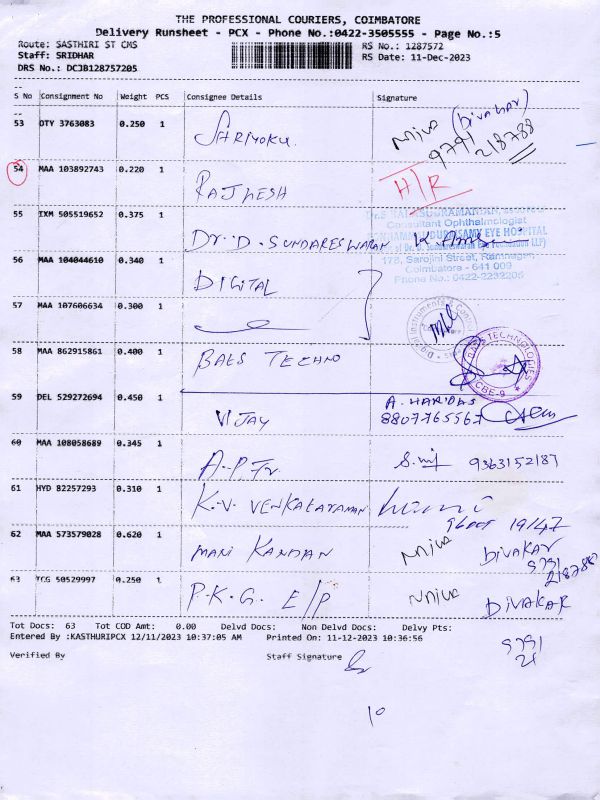 THE PROFESSIONAL COURIERS, COIMBATORE
Delivery Runsheet - PCX - Phone No.:0422-3505555 - Page No.:5
Route: SASTHIRI ST CMS RS No.: 1287572
Staff: SRIDHAR RS Date: 11-Dec-2023
DRS No.: DCJB128757205
S No Consignment No Weight PCS Consignee Details Signature
53 DTY 3763083 0.250 1 (DIVAKAR) 9791 218788
54 MAA 103892743 0.220 1 RAJHESH H/R
55 IXM 505519652 0.375 1 DR. D. SUNDARESWARAN
Consultant Ophthalmologist
EYE HOSPITAL
178, Sarojini Street, Ramnagar,
Coimbatore - 641 009
Phone No.: 0422-2232205
56 MAA 104044610 0.340 1 DIGITAL
57 MAA 107606634 0.300 1
Digital Instruments & Control
58 MAA 862915861 0.400 1 BAES TECHNO
TECHNOLOGIES
CBE-9
59 DEL 529272694 0.450 1 VIJAY A. HARIDAS
8807765567
60 MAA 108058689 0.345 1 A.P.Tr 9363152187
61 HYD 82257293 0.310 1 K.V. VENKATARAMAN
62 MAA 573579028 0.620 1 MANI KANDAN DIVAKAR
9791
218788
63 TCG 50529997 0.250 1 P.K.G. E/P DIVAKAR
9791
21
Tot Docs: 63 Tot COD Amt: 0.00 Delvd Docs: Non Delvd Docs: Delvy Pts:
Entered By :KASTHURIPCX 12/11/2023 10:37:05 AM Printed On: 11-12-2023 10:36:56
Verified By Staff Signature
10